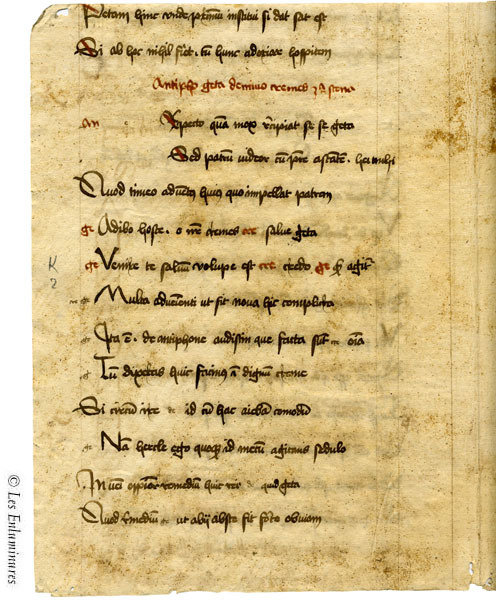 Petam hinc unde primum institui si dat sat est
Si ab hoc nihil fiet . tu hunc adoriar hospitem
Antipho geta demiuo cremes
an Expecto quam mox recipiat se se geta
Sed patruu video cum patre astate . hei michi
Quod timeo adventus huius quo impellat patrem
ge Adibo hosce . o nre chremes cre salve geta
ge Venire te salvum volupe est cre credo ge qd agit
Multa advenienti ut fit nova hic complura
ge Ita e . de antiphone audistin que facta sunt cre oia
ge Tu dixeras huic facinus indignum creme
Sic circum ire de id cu hac aiebam comodum
ge Nam hercle ego quoque id mecu agitans sedulo
Inveni opinor remedium huic rei de quid geta
Quod remedium ge ut abii abs te fit forte obviam
© Les Enluminures